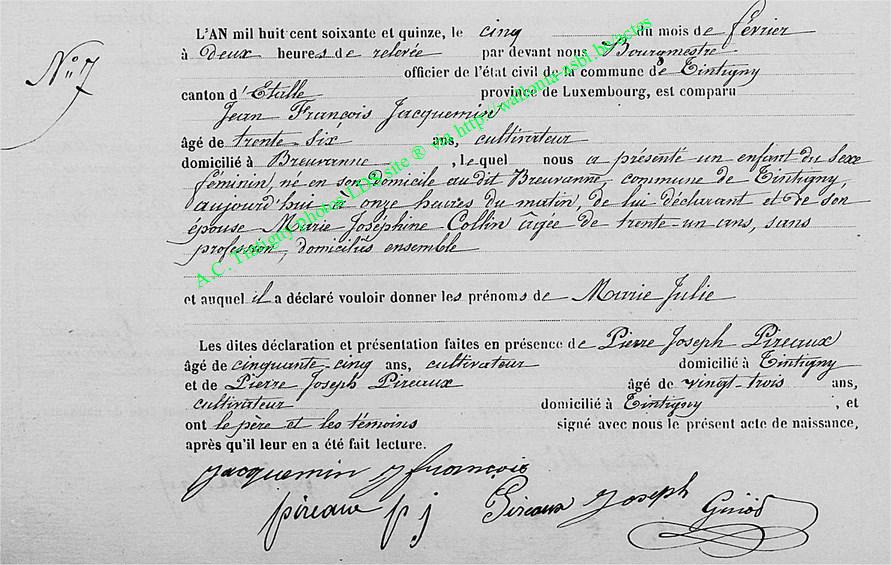 N° 7
L'AN mil huit cent soixante et quinze, le cinq du mois de février
à deux heures de relevée par devant nous Bourgmestre
officier de l'état civil de la commune de Tintigny
canton d'Etalle province de Luxembourg, est comparu
Jean François Jacquemin
âgé de trente-six ans, cultivateur
domicilié à Breuvanne, lequel nous a présenté un enfant du sexe
féminin, né en son domicile audit Breuvanne, commune de Tintigny,
aujourd'hui à onze heures du matin, de lui déclarant et de son
épouse Marie Joséphine Collin âgée de trente-un ans, sans
profession, domiciliés ensemble
et auquel il a déclaré vouloir donner les prénoms de Marie Julie
Les dites déclaration et présentation faites en présence de Pierre Joseph Pireaux
âgé de cinquante-cinq ans, cultivateur domicilié à Tintigny
et de Pierre Joseph Pireaux âgé de vingt-trois ans,
cultivateur domicilié à Tintigny, et
ont le père et les témoins signé avec nous le présent acte de naissance,
après qu'il leur en a été fait lecture.
Jacquemin J françois
pireaux p j Pireaux Joseph
A.C. Tintigny photos LDS site ® via http://wallonia-asbl.be/actes